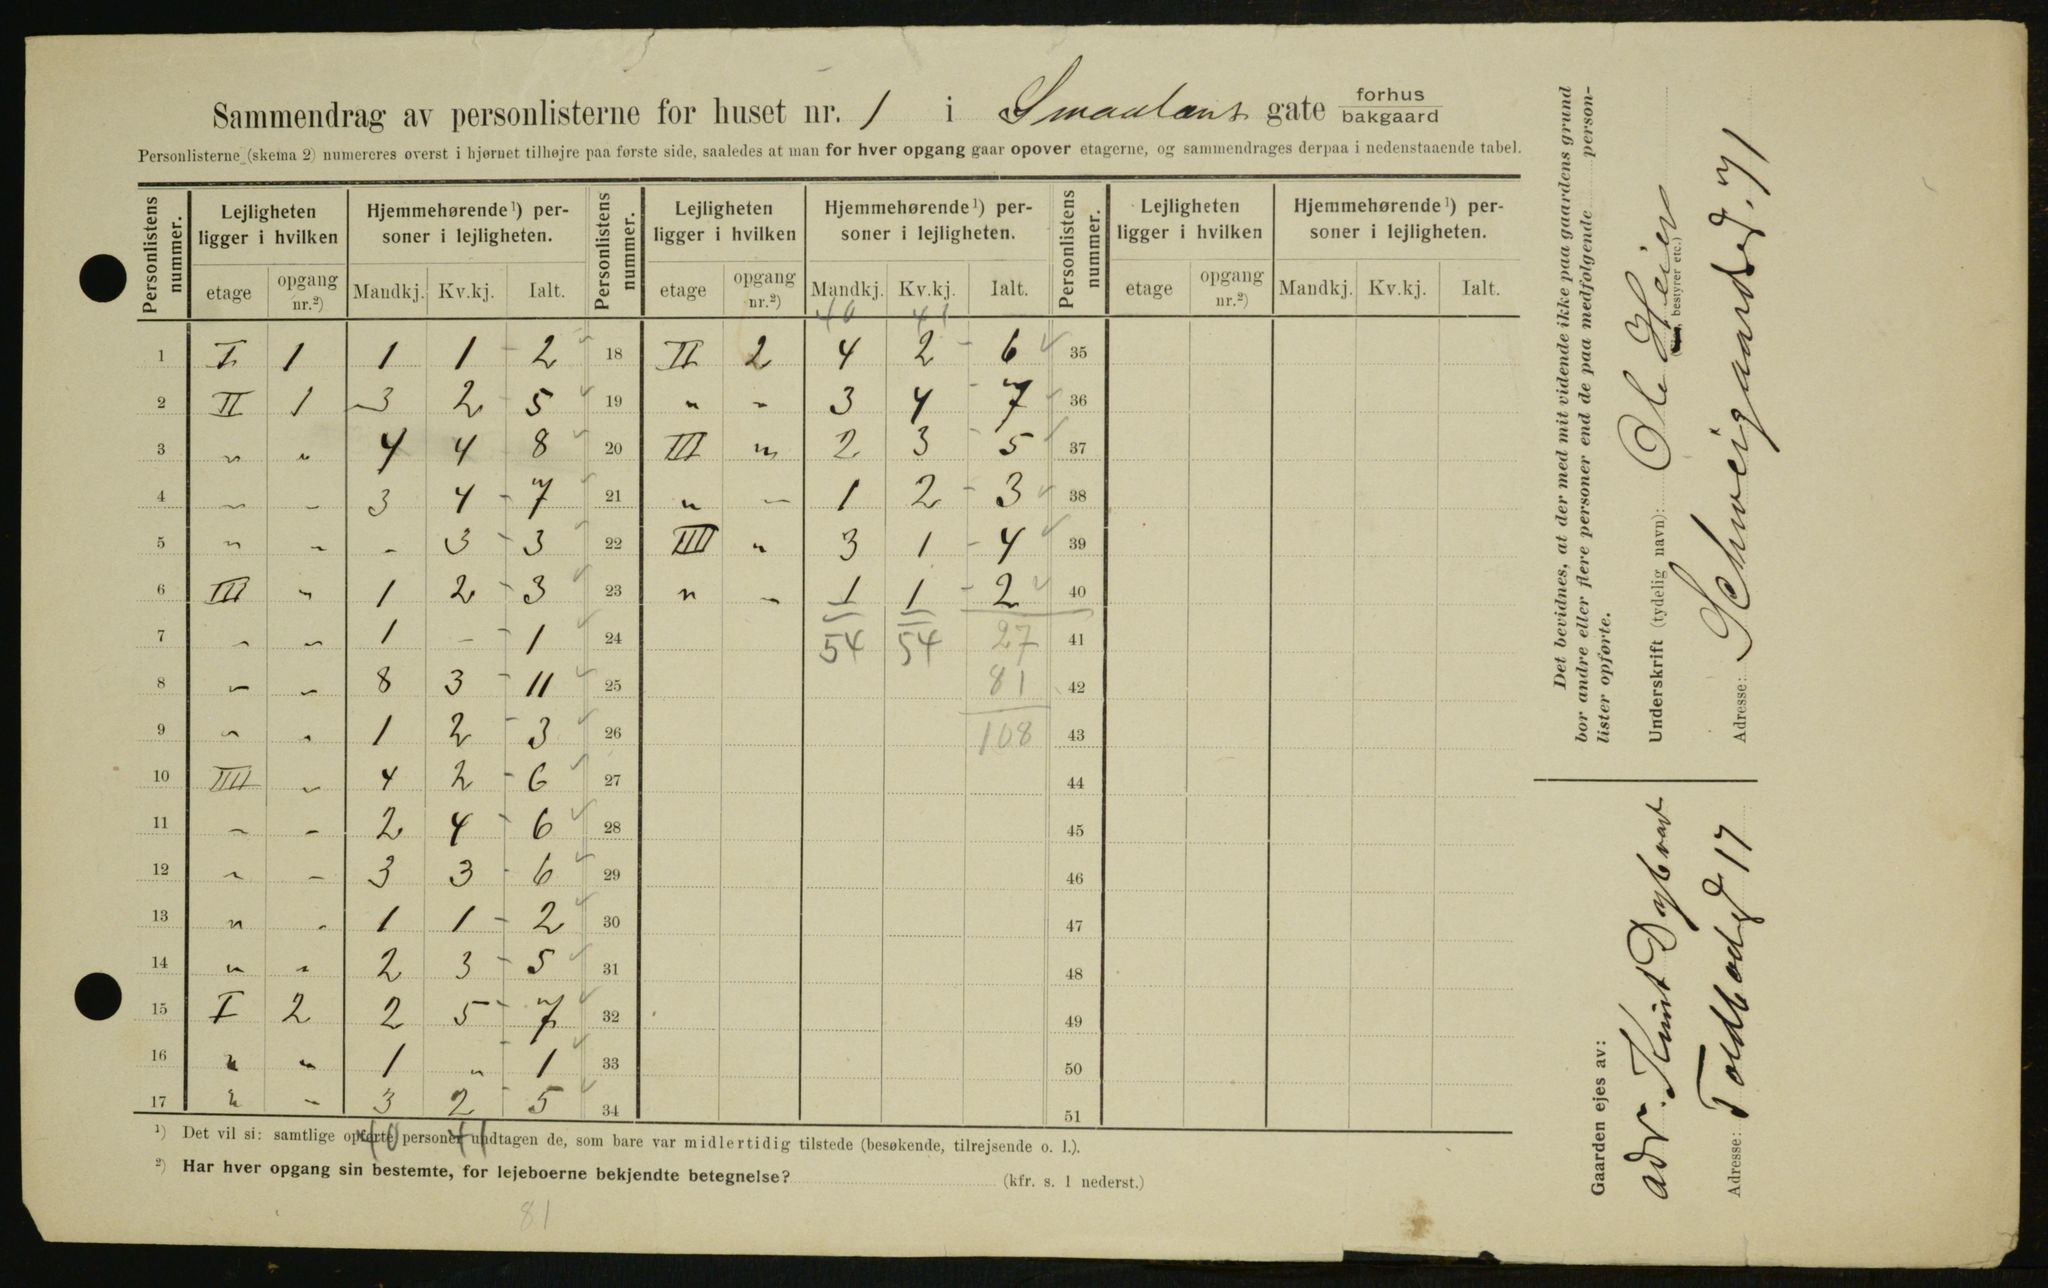 Sammendrag av personlisterne for huset nr. 1 i Smaalens gate forhus bakgaard
Personlisterne (skema 2) numereres øverst i hjørnet tilhøjre paa første side, saaledes at man for hver opgang gaar opover etagerne, og sammendrages derpaa i nedenstaaende tabel.
Personlistens nummer. Lejligheten ligger i hvilken Hjemmehørende¹) personer i lejligheten. Personlistens nummer. Lejligheten ligger i hvilken Hjemmehørende¹) personer i lejligheten. Personlistens nummer. Lejligheten ligger i hvilken Hjemmehørende¹) personer i lejligheten.
etage opgang nr.²) Mandkj. Kv.kj. Ialt. etage opgang nr.²) Mandkj. Kv.kj. Ialt. etage opgang nr.²) Mandkj. Kv.kj. Ialt.
40 41
1 I 1 1 1 - 2 18 II 2 4 2 - 6 35
2 II 1 3 2 - 5 19 " " 3 4 - 7 36
3 " " 4 4 8 20 III " 2 3 - 5 37
4 " " 3 4 - 7 21 " " 1 2 - 3 38
5 " " - 3 - 3 22 IIII " 3 1 - 4 39
6 III " 1 2 - 3 23 " " 1 1 - 2 40
7 " " 1 - - 1 24 54 54 27 41
8 " " 8 3 - 11 25 81 42
9 " " 1 2 - 3 26 108 43
10 IIII " 4 2 - 6 27 44
11 " " 2 4 - 6 28 45
12 " " 3 3 - 6 29 46
13 " " 1 1 - 2 30 47
14 " " 2 3 - 5 31 48
15 I 2 2 5 - 7 32 49
16 " " 1 " 1 33 50
17 " " 3 2 - 5 34 51
40 41
¹) Det vil si: samtlige opførte personer undtagen de, som bare var midlertidig tilstede (besøkende, tilrejsende o. l.).
²) Har hver opgang sin bestemte, for lejeboerne bekjendte betegnelse? (kfr. s. 1 nederst.)
81
Det bevidnes, at der med mit vidende ikke paa gaardens grund
bor andre eller flere personer end de paa medfølgende personlister opførte.
Underskrift (tydelig navn): Ole Heier
(Eier, bestyrer etc.)
Adresse: Schweigaardsgd. 71
Gaarden ejes av:
adv. Knut
Adresse: Toldbodgd 17